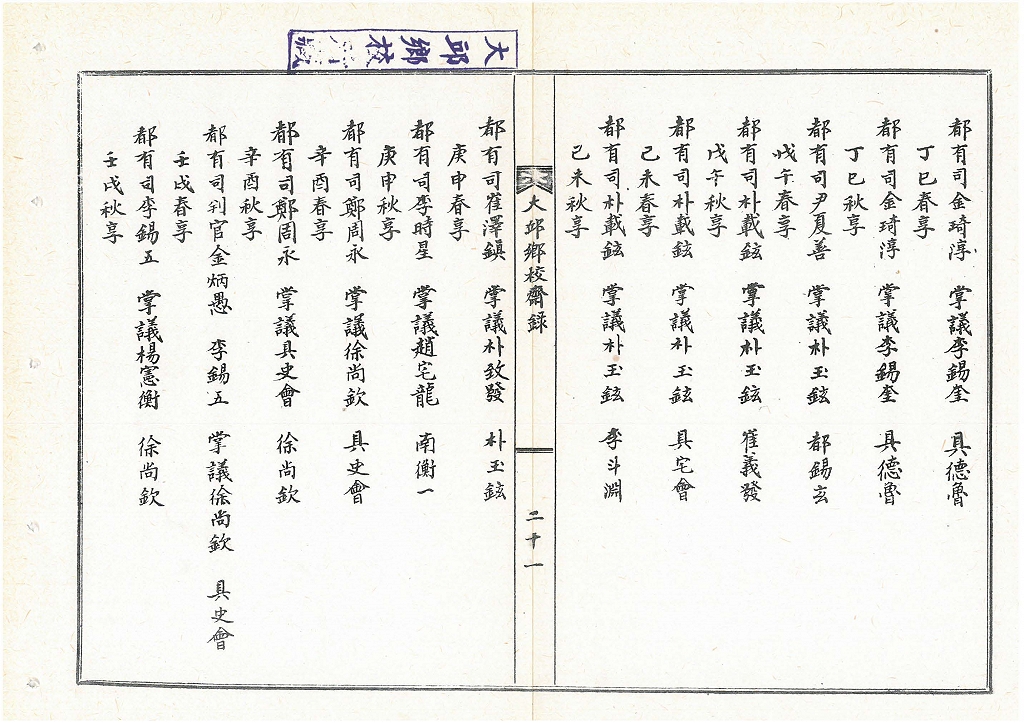 大邱鄉校藏
都有司金琦淳 掌議李錫奎 具德魯
丁巳春享
都有司金琦淳 掌議李錫奎 具德魯
丁巳秋享
都有司尹夏善 掌議朴玉鉉 都錫玄
戊午春享
都有司朴載鉉 掌議朴玉鉉 崔義發
戊午秋享
都有司朴載鉉 掌議朴玉鉉 具宅會
己未春享
都有司朴載鉉 掌議朴玉鉉 李斗淵
己未秋享
大邱鄉校齋錄 二十一
都有司崔澤鎭 掌議朴致發 朴玉鉉
庚申春享
都有司李時星 掌議趙宅龍 南衡一
庚申秋享
都有司鄭周永 掌議徐尚欽 具史會
辛酉春享
都有司鄭周永 掌議具史會 徐尚欽
辛酉秋享
都有司判官金炳愚 李錫五 掌議徐尚欽 具史會
壬戌春享
都有司李錫五 掌議楊憲衡 徐尚欽
壬戌秋享